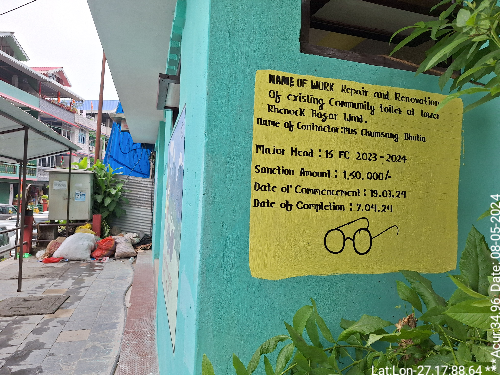 NAME OF WORK Repair and Renovation
Of existing Community toilet at lower
Rhenock Bazar Ward.
Name of Contractor: Mrs Chumsang Bhutia
Major Head : 15 FC 2023-2024
Sanction Amount : 1,50,000/-
Date of Commencement : 19.03.24
Date of Completion : 7.04.24
Lat:Lon-27.17:88.64 **